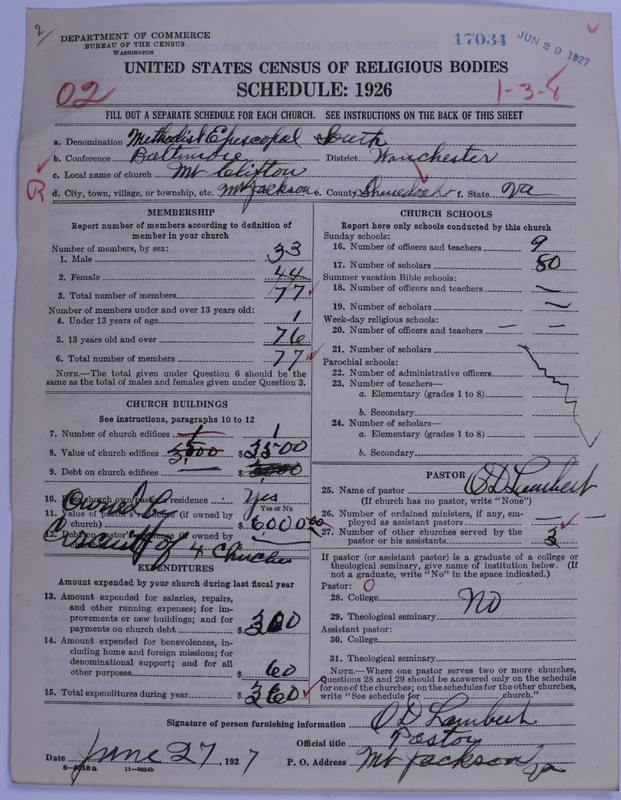 2/
DEPARTMENT OF COMMERCE
BUREAU OF THE CENSUS
WASHINGTON
17034
JUN 29 1927
UNITED STATES CENSUS OF RELIGIOUS BODIES
SCHEDULE: 1926
02
1-3-8
FILL OUT A SEPARATE SCHEDULE FOR EACH CHURCH. SEE INSTRUCTIONS ON THE BACK OF THIS SHEET
a. Denomination Methodist Episcopal South
b. Conference Baltimore District Winchester
c. Local name of church Mt Clifton
R
d. City, town, village, or township, etc. Mt Jackson e. County f. State Va
MEMBERSHIP
Report number of members according to definition of
member in your church
Number of members, by sex:
1. Male 33
2. Female 44
3. Total number of members 77
Number of members under and over 13 years old:
4. Under 13 years of age 1
5. 13 years old and over 76
6. Total number of members 77
NOTE.—The total given under Question 6 should be the
same as the total of males and females given under Question 3.
CHURCH BUILDINGS
See instructions, paragraphs 10 to 12
7. Number of church edifices 1 1
8. Value of church edifices $
9. Debt on church edifices $
10. Does church own pastor's residence Yes
Yes or No
Owned
11. Value of pastor's residence (if owned by
church) $6000.00
12. Debt on pastor's residence (if owned by
church)
Circuit of 4 Churches
EXPENDITURES
Amount expended by your church during last fiscal year
13. Amount expended for salaries, repairs,
and other running expenses; for im-
provements or new buildings; and for
payments on church debt $
14. Amount expended for benevolences, in-
cluding home and foreign missions; for
denominational support; and for all
other purposes $ 60
15. Total expenditures during year $
CHURCH SCHOOLS
Report here only schools conducted by this church
Sunday schools:
16. Number of officers and teachers 9
17. Number of scholars 80
Summer vacation Bible schools:
18. Number of officers and teachers —
19. Number of scholars —
Week-day religious schools:
20. Number of officers and teachers — —
21. Number of scholars
Parochial schools:
22. Number of administrative officers
23. Number of teachers—
a. Elementary (grades 1 to 8)
b. Secondary
24. Number of scholars—
a. Elementary (grades 1 to 8)
b. Secondary
PASTOR
25. Name of pastor O D Lambert
(If church has no pastor, write "None")
26. Number of ordained ministers, if any, em-
ployed as assistant pastors —
27. Number of other churches served by the
pastor or his assistants 3
If pastor (or assistant pastor) is a graduate of a college or
theological seminary, give name of institution below. (If
not a graduate, write "No" in the space indicated.)
Pastor: O
28. College No
29. Theological seminary
Assistant pastor:
30. College
31. Theological seminary
NOTE.—Where one pastor serves two or more churches,
Questions 28 and 29 should be answered only on the schedule
for one of the churches; on the schedules for the other churches,
write "See schedule for church."
Signature of person furnishing information O D Lambert
Official title Pastor
Date June 27, 1927 P. O. Address Mt Jackson Va
11—9034b